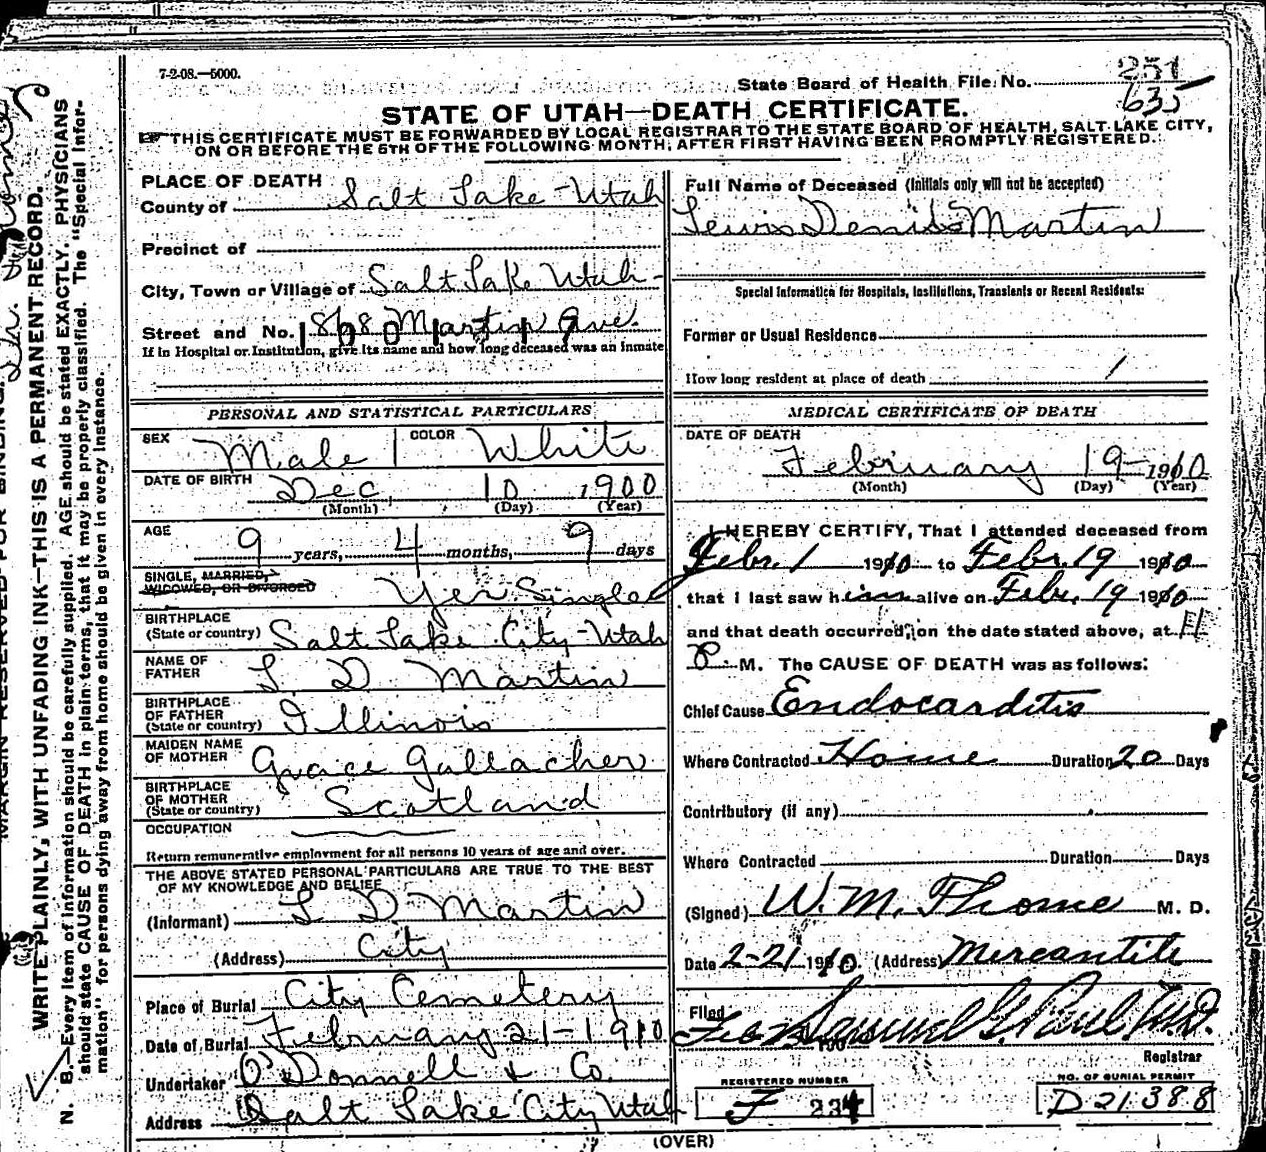 7-2-08.—5000.
State Board of Health File No. 251
635
STATE OF UTAH—DEATH CERTIFICATE.
THIS CERTIFICATE MUST BE FORWARDED BY LOCAL REGISTRAR TO THE STATE BOARD OF HEALTH, SALT LAKE CITY,
ON OR BEFORE THE 5TH OF THE FOLLOWING MONTH, AFTER FIRST HAVING BEEN PROMPTLY REGISTERED.
PLACE OF DEATH
County of Salt Lake - Utah
Precinct of
City, Town or Village of Salt Lake Utah -
Street and No. 868 Martin Ave.
If in Hospital or Institution, give its name and how long deceased was an inmate
Full Name of Deceased (Initials only will not be accepted)
Lewis Denis Martin
Special Information for Hospitals, Institutions, Transients or Recent Residents:
Former or Usual Residence
How long resident at place of death
PERSONAL AND STATISTICAL PARTICULARS
SEX Male COLOR White
DATE OF BIRTH Dec. 10 1900
(Month) (Day) (Year)
AGE 9 years, 4 months, 9 days
SINGLE, MARRIED,
WIDOWED, OR DIVORCED Yes Single
BIRTHPLACE
(State or country) Salt Lake City - Utah
NAME OF
FATHER L. D. Martin
BIRTHPLACE
OF FATHER
(State or country) Illinois
MAIDEN NAME
OF MOTHER Grace Gallacher
BIRTHPLACE
OF MOTHER
(State or country) Scotland
OCCUPATION
Return remunerative employment for all persons 10 years of age and over.
THE ABOVE STATED PERSONAL PARTICULARS ARE TRUE TO THE BEST
OF MY KNOWLEDGE AND BELIEF
(Informant) L. D. Martin
(Address) City
Place of Burial City Cemetery
Date of Burial February 21-1910
Undertaker O'Donnell & Co.
Address Salt Lake City Utah
MEDICAL CERTIFICATE OF DEATH
DATE OF DEATH
February 19- 1910
(Month) (Day) (Year)
I HEREBY CERTIFY, That I attended deceased from
Febr. 1 1910 to Febr. 19 1910
that I last saw him alive on Febr. 19 1910
and that death occurred, on the date stated above, at 11
P. M. The CAUSE OF DEATH was as follows:
Chief Cause Endocarditis
Where Contracted Home Duration 20 Days
Contributory (if any)
Where Contracted Duration Days
(Signed) W. M. Thome M. D.
Date 2-21 1910. (Address) Mercantile
Filed Samuel G. Paul M.D.
Registrar
REGISTERED NUMBER
F 234
NO. OF BURIAL PERMIT
D 21388
(OVER)
MARGIN RESERVED FOR BINDING.
WRITE PLAINLY, WITH UNFADING INK—THIS IS A PERMANENT RECORD.
N. B.—Every item of information should be carefully supplied. AGE should be stated EXACTLY. PHYSICIANS
should state CAUSE OF DEATH in plain terms, that it may be properly classified. The "Special Infor-
mation" for persons dying away from home should be given in every instance.